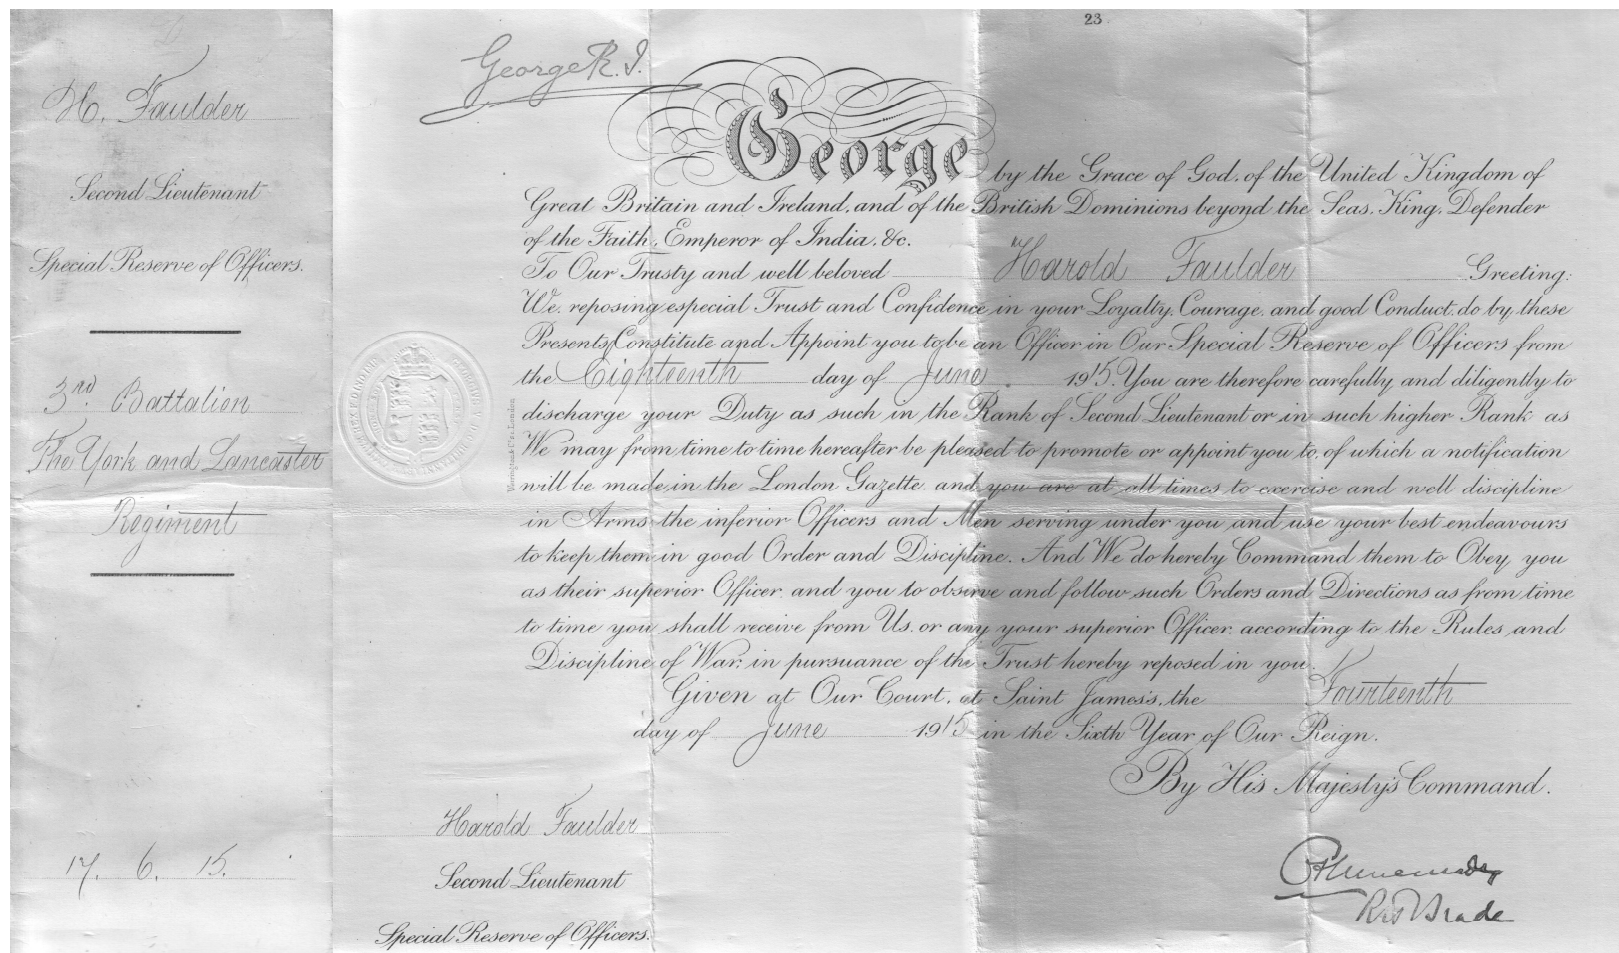 23
H. Faulder
Second Lieutenant
Special Reserve of Officers.
3rd. Battalion
The York and Lancaster
Regiment
17. 6. 15.
George R.I.
George by the Grace of God, of the United Kingdom of
Great Britain and Ireland, and of the British Dominions beyond the Seas, King, Defender
of the Faith, Emperor of India, &c.
To Our Trusty and well beloved Harold Faulder Greeting:
We, reposing especial Trust and Confidence in your Loyalty, Courage, and good Conduct, do by these
Presents Constitute and Appoint you to be an Officer in Our Special Reserve of Officers from
the Eighteenth day of June 1915. You are therefore carefully and diligently to
discharge your Duty as such in the Rank of Second Lieutenant or in such higher Rank as
We may from time to time hereafter be pleased to promote or appoint you to, of which a notification
will be made in the London Gazette, and you are at all times to exercise and well discipline
in Arms the inferior Officers and Men serving under you and use your best endeavours
to keep them in good Order and Discipline. And We do hereby Command them to Obey you
as their superior Officer, and you to observe and follow such Orders and Directions as from time
to time you shall receive from Us, or any your superior Officer, according to the Rules and
Discipline of War, in pursuance of the Trust hereby reposed in you.
Given at Our Court, at Saint James's, the Fourteenth
day of June 1915 in the Sixth Year of Our Reign.
By His Majesty's Command.
Harold Faulder
Second Lieutenant
Special Reserve of Officers.
Brade